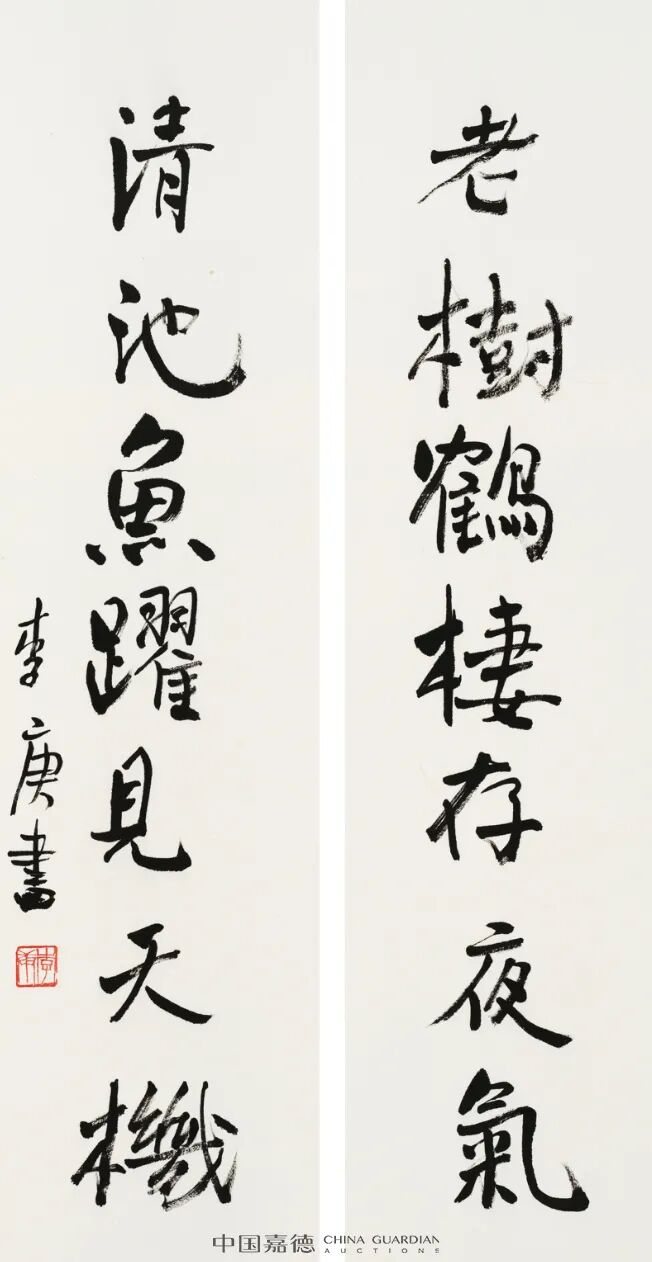 老樹鶴棲存夜氣
清池魚躍見天機
李庚書
中国嘉德 CHINA GUARDIAN
AUCTIONS